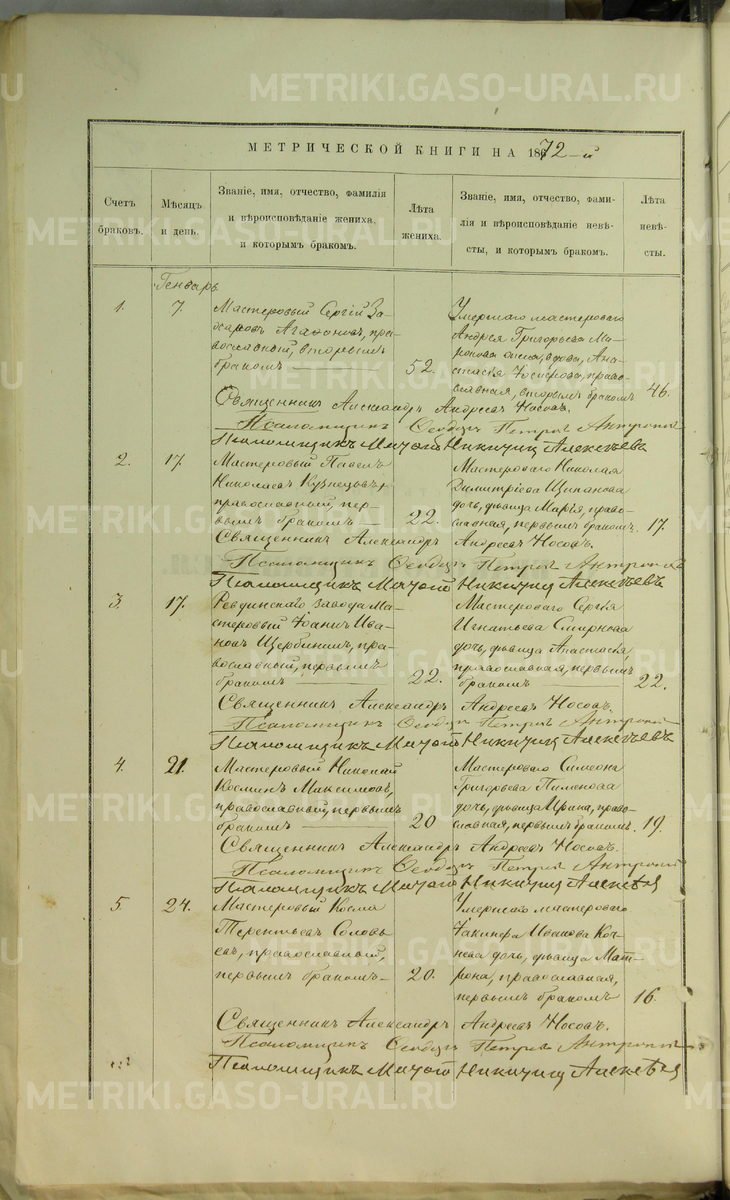 METRIKI.GASO-URAL.RU
МЕТРИЧЕСКОЙ КНИГИ НА 1872-й
Счетъ браковъ.
Мѣсяцъ и день.
Званіе, имя, отчество, фамилія
и вѣроисповѣданіе жениха,
и которымъ бракомъ.
Лѣта жениха.
Званіе, имя, отчество, фами-
лія и вѣроисповѣданіе невѣ-
сты, и которымъ бракомъ.
Лѣта невѣ-
сты.
Генварь
1. 7. Мастеровый Сергій За-
Агафоновъ, пра-
вославный, вторымъ
бракомъ 52.
Умершаго мастероваго
Андрея Григорьева Ми-
ронова жена, вдова, Ана-
стасія право-
славная, вторымъ бракомъ 46.
Священникъ Александръ Андреевъ Носовъ.
Псаломщикъ Ѳеодоръ Петровъ
Псаломщикъ Никичиц Алексѣевъ
2. 17. Мастеровый Павелъ
Николаевъ Кузнецовъ,
православный, пер-
вымъ бракомъ 22.
Мастероваго Николая
Димитріева Щипанова
дочь, дѣвица Марія, право-
славная, первымъ бракомъ. 17.
Священникъ Александръ Андреевъ Носовъ.
Псаломщикъ Ѳеодоръ Петровъ
Псаломщикъ Алексѣевъ
3. 17. Ревдинскаго завода Ма-
стеровый Іоаннъ Ива-
новъ Щербининъ, пра-
вославный, первымъ
бракомъ 22.
Мастероваго Сергія
Игнатьева Смирнова
дочь, дѣвица Анастасія,
православная, первымъ
бракомъ 22.
Священникъ Александръ Андреевъ Носовъ.
Псаломщикъ Ѳеодоръ Петровъ
Псаломщикъ Алексѣевъ
4. 21. Мастеровый Николай
Космичъ Максимовъ,
православный, первымъ
бракомъ 20
Мастероваго Симеона
Григорьева Пименова
дочь, дѣвица Ирина, право-
славная, первымъ бракомъ. 19.
Священникъ Александръ Андреевъ Носовъ.
Псаломщикъ Ѳеодоръ Петровъ
Псаломщикъ Алексѣевъ
5. 24. Мастеровый Косма
Терентьевъ Соловь-
евъ, православный,
первымъ бракомъ 20.
Умершаго мастероваго
Іакинфа Иванова Коч-
нева дочь, дѣвица Мат-
рона, православная,
первымъ бракомъ 16.
Священникъ Александръ Андреевъ Носовъ.
Псаломщикъ Ѳеодоръ Петровъ
Псаломщикъ Алексѣевъ